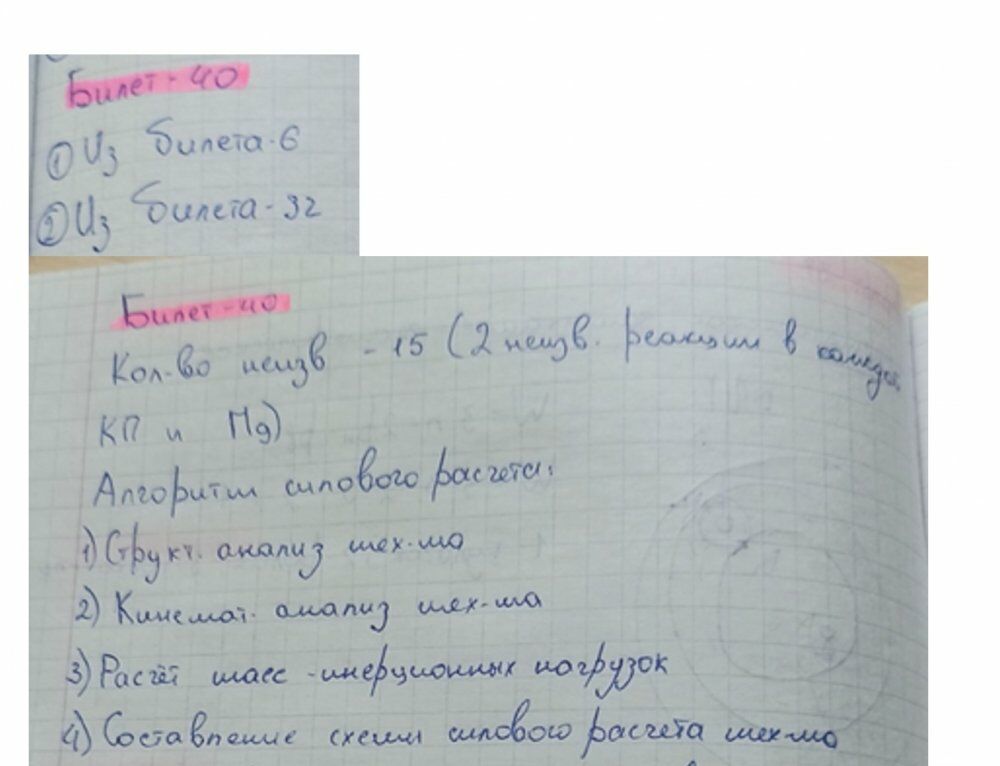 Билет - 40
① Из билета - 6
② Из билета - 32
Билет - 40
Кол-во неизв - 15 (2 неизв. реакции в каждой
КП и Mд)
Алгоритм силового расчета:
1) Структ. анализ мех-ма
2) Кинемат. анализ мех-ма
3) Расчёт масс-инерционных нагрузок
4) Составление схемы силового расчета мех-ма